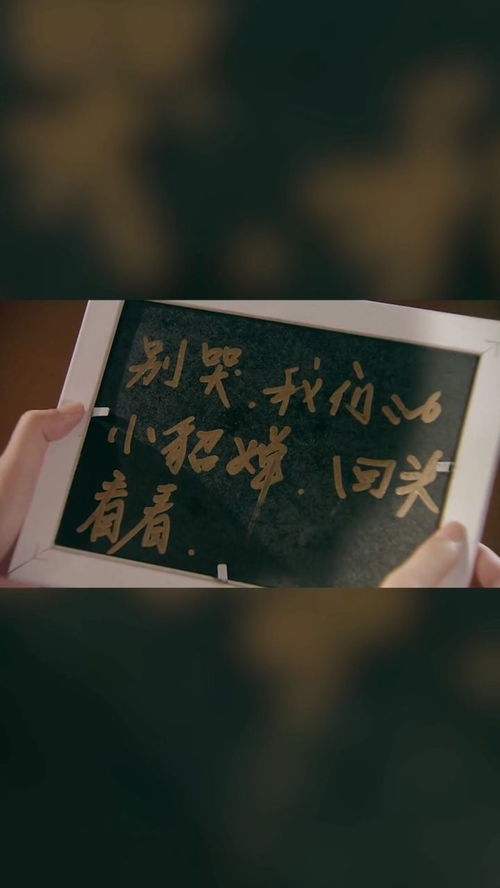 别哭.我们的
小貂婵.回头
看看.